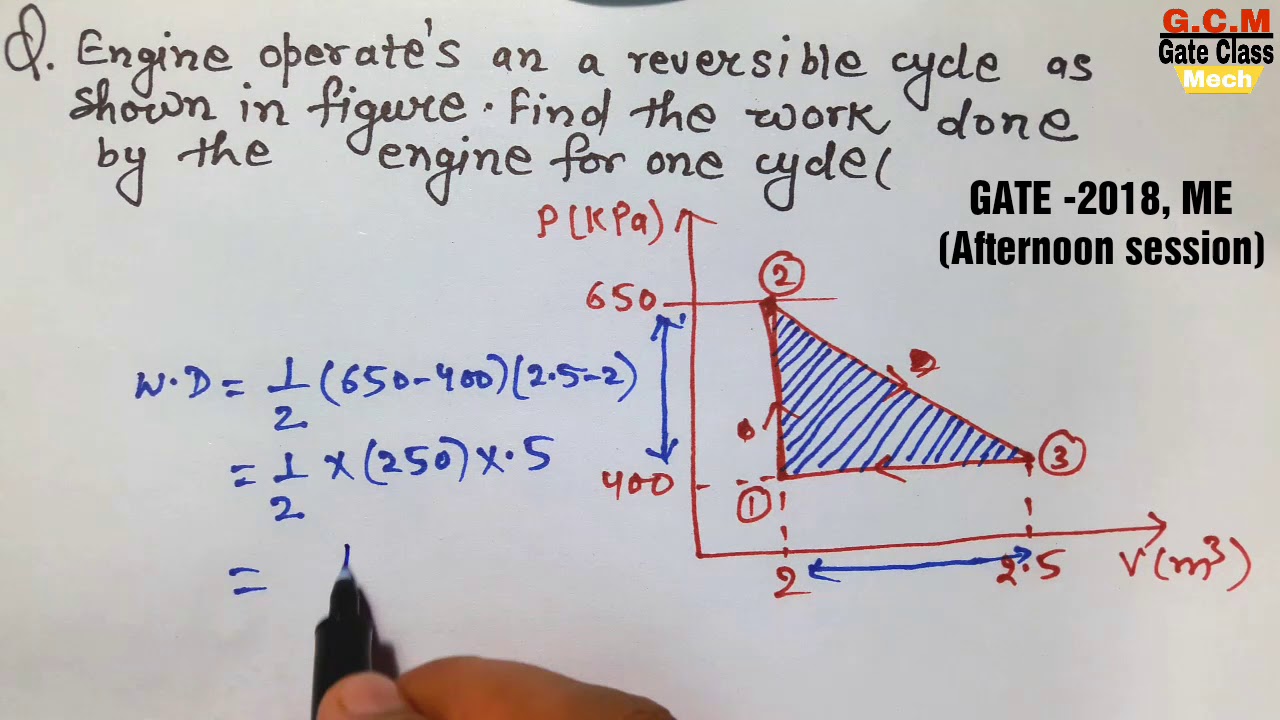 G.C.M
Gate Class
Mech
Q. Engine operate's an a reversible cycle as
shown in figure. Find the work done
by the engine for one cycle(
GATE -2018, ME
(Afternoon session)
P(KPa)
2
650
W.D = 1/2 (650-400)(2.5-2)
= 1/2 x (250) x .5
=
400
1
3
2
2.5
V(m³)